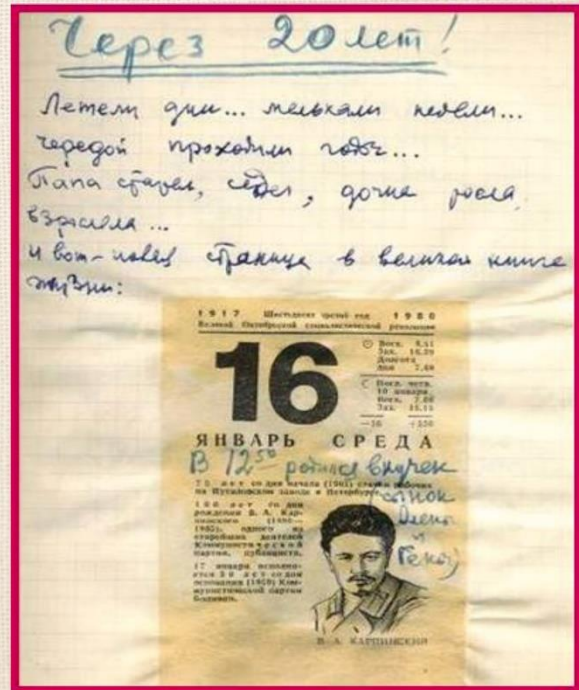 Через 20 лет!
Летели дни... мелькали недели...
чередой проходили годы...
Папа старел, седел, дочка росла,
взрослела...
И вот - новая страница в великой книге
жизни:
1917 Шестьдесят третий год 1980
Великой Октябрьской социалистической революции
16
Восх. 8.51
Зах. 16.29
Долгота
дня 7.38
Посл. четв.
10 января
ЯНВАРЬ СРЕДА
В 12⁵⁰ родился внучек
75 лет со дня начала (1905) стачки рабочих
на Путиловском заводе в Петербурге.
(сынок
Олены
и
Гены)
100 лет со дня
рождения В. А. Кар-
пинского (1880—
1965), одного из
старейших деятелей
Коммунистической
партии, публициста.
17 января исполня-
ется 30 лет со дня
основания (1950) Ком-
мунистической партии
Боливии.
В. А. КАРПИНСКИЙ